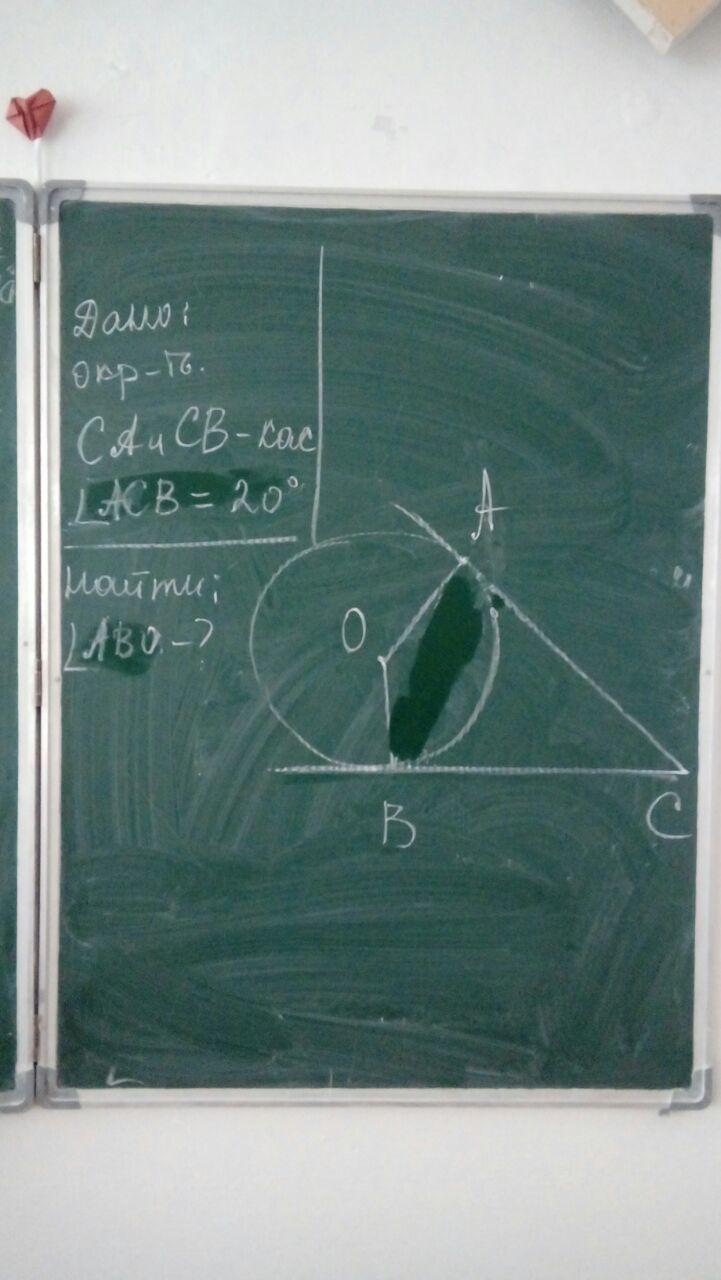 Дано:
окр-ть.
CA и CB - кас
∠ACB = 20°
Найти:
∠ABO - ?
A
O
B
C